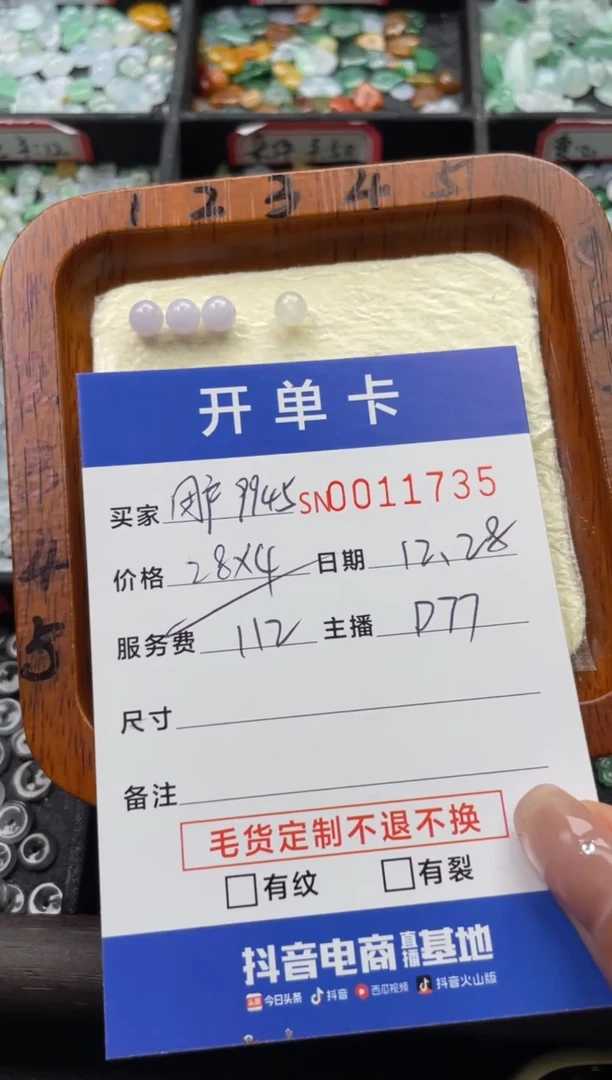 1 2 3 4 5
4
5
开单卡
买家 用户9945 SN0011735
价格 28X4 日期 12.28
服务费 112 主播 D77
尺寸
备注
毛货定制不退不换
有纹 有裂
抖音电商直播基地
头条 今日头条 抖音 西瓜视频 抖音火山版